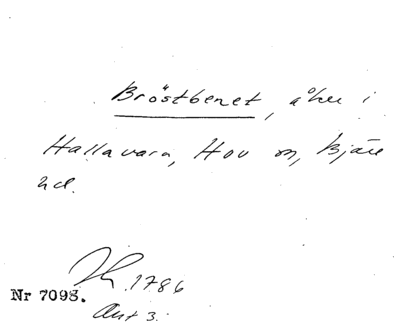 Bröstbenet, åker i
Hallavara, Hov sn, Bjäre
hd.
1786
Nr 7098.
Ant 3.